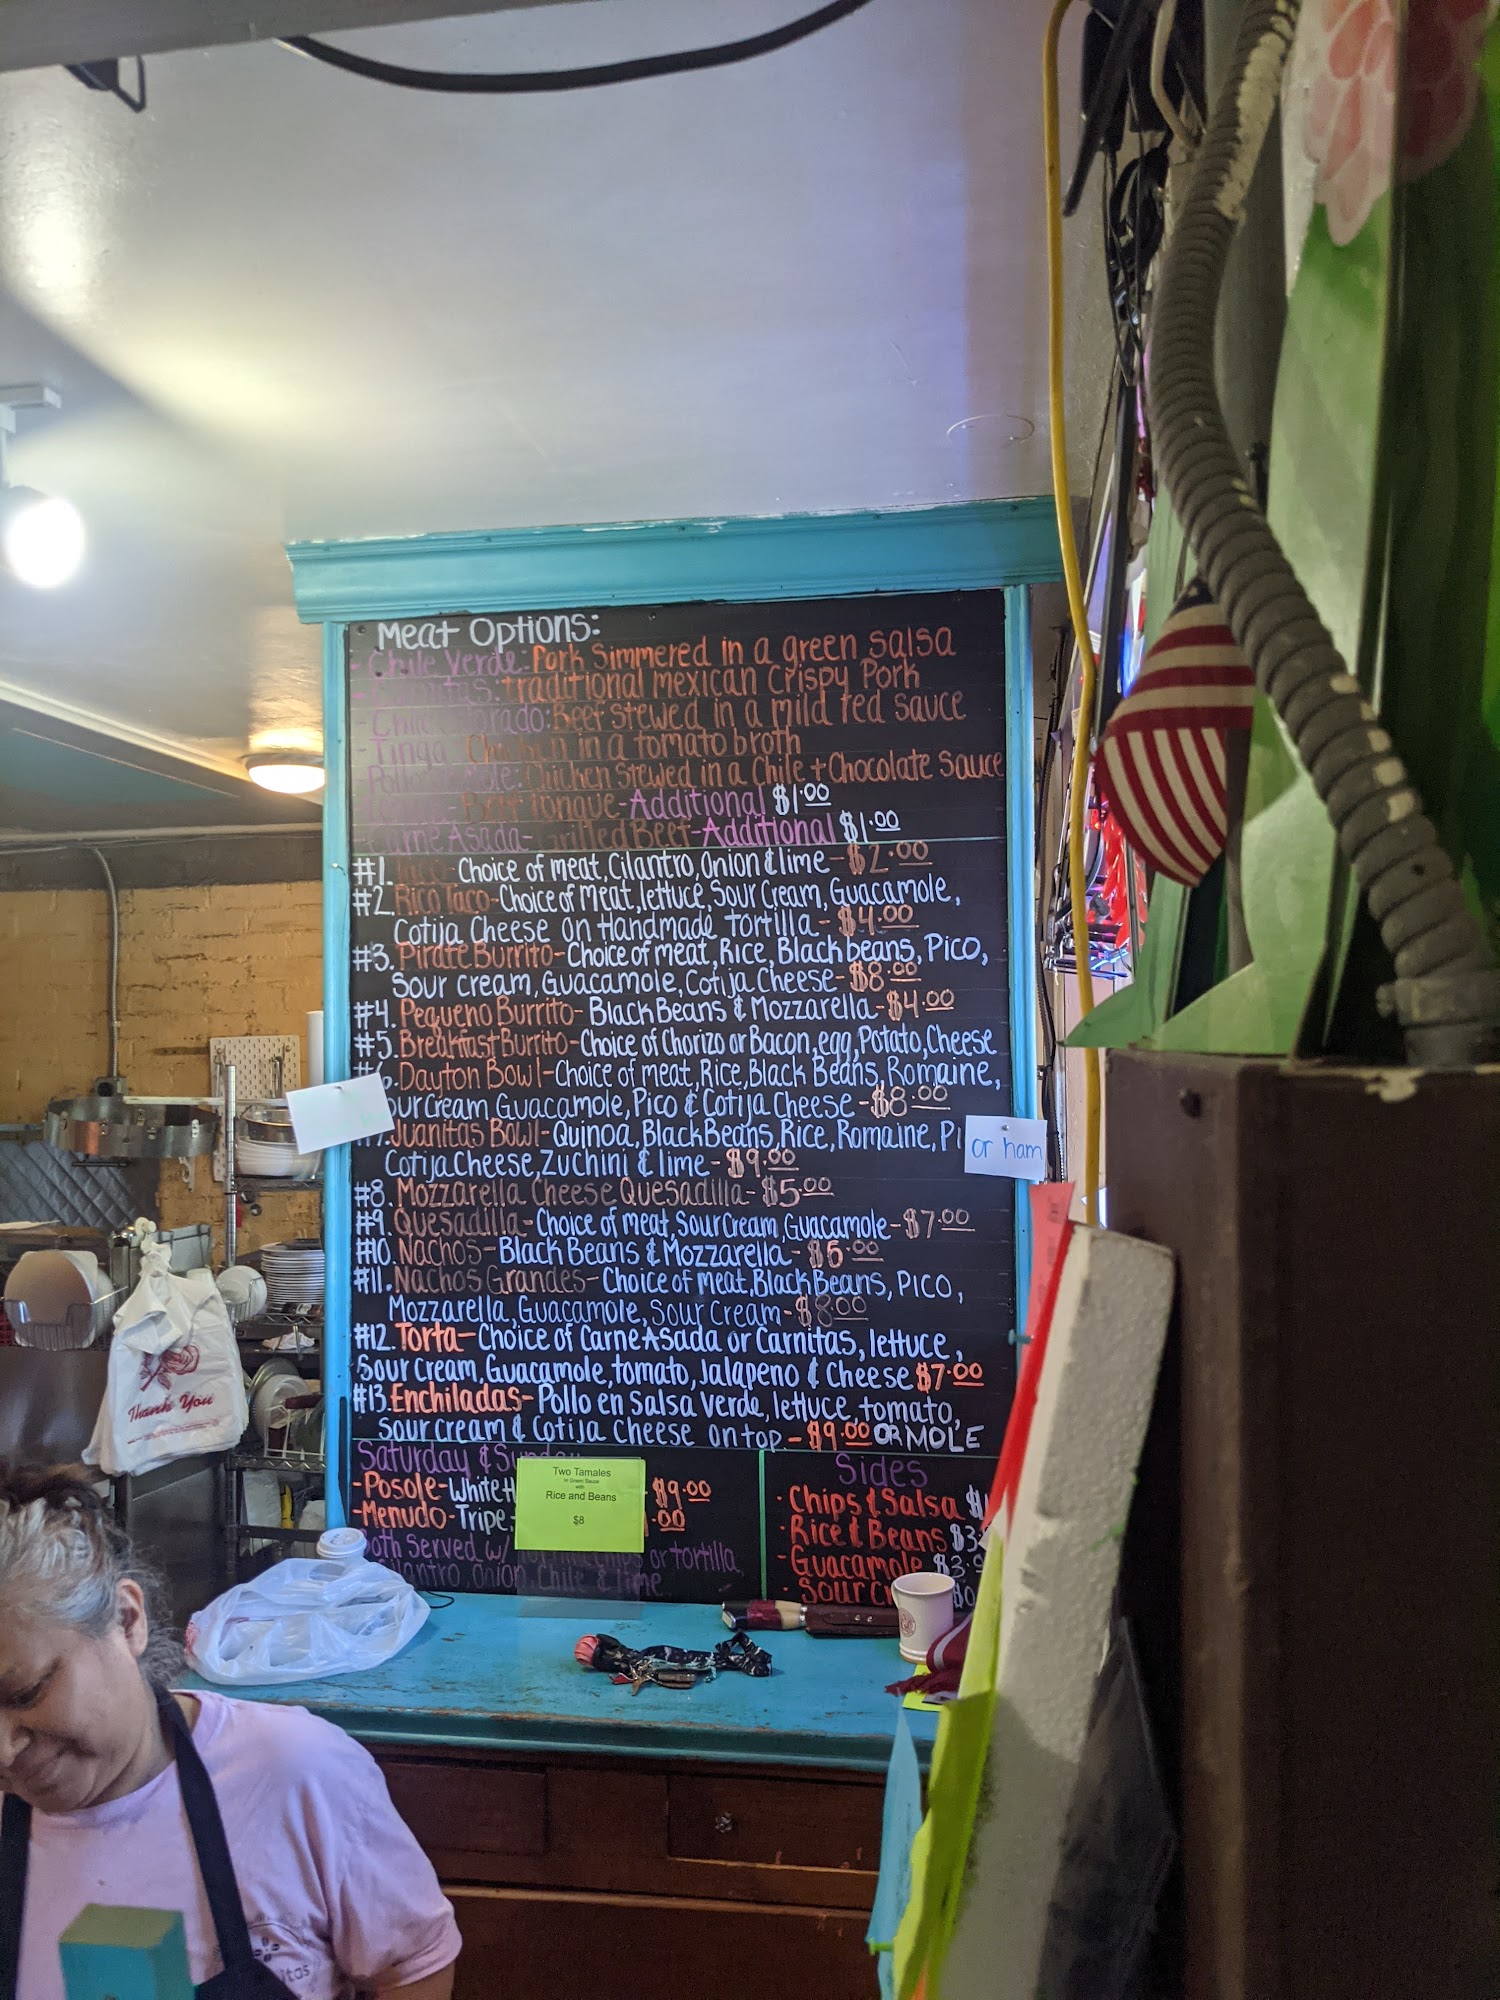 Meat Options:
- Chile Verde: Pork Simmered in a green Salsa
- Carnitas: traditional mexican Crispy Pork
- Chile Colorado: Beef stewed in a mild red sauce
- Tinga - Chicken in a tomato broth
- Pollo en Mole: Chicken stewed in a Chile + Chocolate Sauce
- Beef Tongue - Additional $1.00
- Carne Asada - Grilled Beef - Additional $1.00
#1. Taco - Choice of meat, Cilantro, Onion & lime - $2.00
#2. Rico Taco - Choice of Meat, lettuce, Sour Cream, Guacamole,
Cotija Cheese on Handmade tortilla - $4.00
#3. Pirate Burrito - Choice of meat, Rice, Black beans, Pico,
Sour cream, Guacamole, Cotija Cheese - $8.00
#4. Pequeno Burrito - Black Beans & Mozzarella - $4.00
#5. Breakfast Burrito - Choice of Chorizo or Bacon, egg, Potato, Cheese
#6. Dayton Bowl - Choice of meat, Rice, Black Beans, Romaine,
our Cream, Guacamole, Pico & Cotija Cheese - $8.00
7. Juanitas Bowl - Quinoa, Black Beans, Rice, Romaine, Pi
or ham
Cotija Cheese, Zuchini & lime - $9.00
#8. Mozzarella Cheese Quesadilla - $5.00
#9. Quesadilla - Choice of meat, Sour Cream, Guacamole - $7.00
#10. Nachos - Black Beans & Mozzarella - $5.00
#11. Nachos Grandes - Choice of meat, Black Beans, PICO,
Mozzarella, Guacamole, Sour Cream - $8.00
#12. Torta - Choice of Carne Asada or Carnitas, lettuce,
Sour cream, Guacamole, tomato, Jalapeno & Cheese $7.00
#13. Enchiladas - Pollo en Salsa Verde, lettuce, tomato,
Sour cream & Cotija Cheese on top - $9.00 OR MOLE
Saturday & Sunday
- Posole - White H $9.00
- Menudo - Tripe, .00
Both Served w/ or tortilla
Cilantro, onion, Chile & lime
Two Tamales
in Green Sauce
with
Rice and Beans
$8
Sides
· Chips & Salsa $
· Rice & Beans $3.
· Guacamole $3.
· Sour Cr $0
Thank You